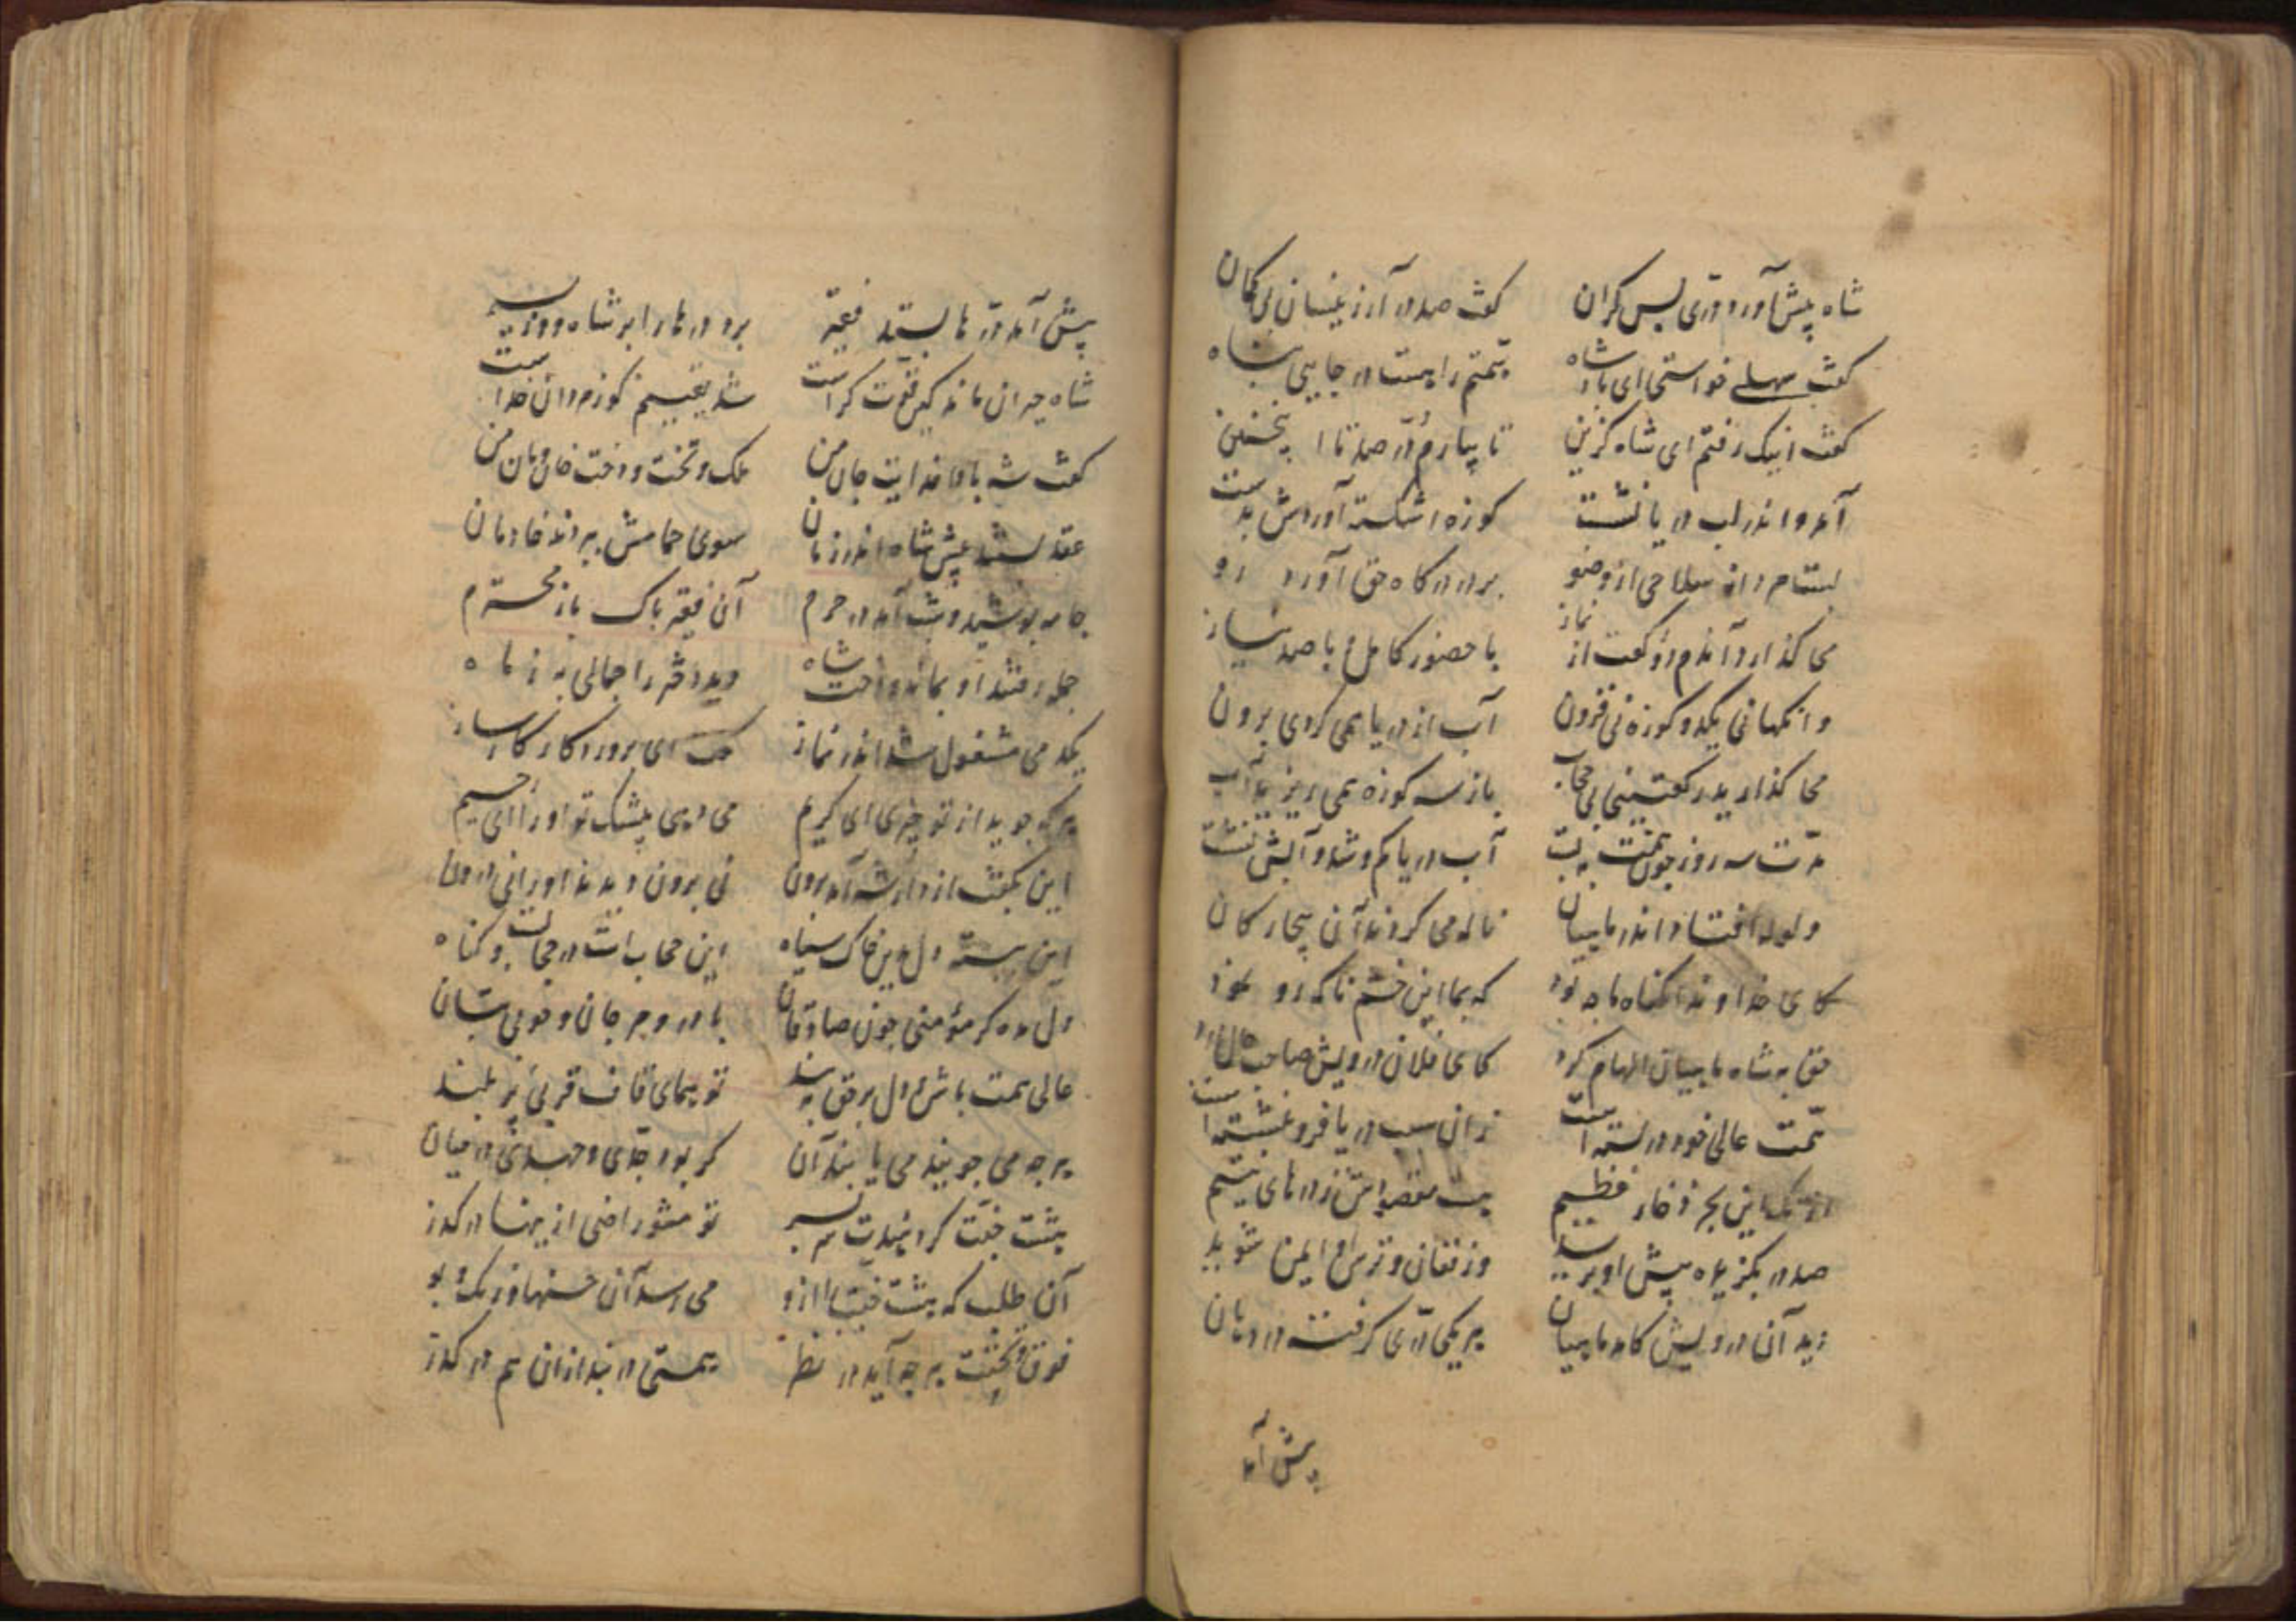 شاه پیش آورد دری بس کران کفت صد در آر زینسان بی کمان
کفت سهلی خواستی ای پادشاه همتم را هست در جایی پناه
کفت اینک رفتم ای شاه کزین تا بیارم در صد تا اینچنین
آمد و اندر لب دریا نشست کوزه اشکسته آوردش بدست
بر در درکاه حق آورد رو
می کذارد آندم دو رکعت از نماز با حضور کامل و با صد نیاز
وانکهانی یکدو کوزه نی فزون آب از دریا همی کردی برون
می کذارید رکعتینی بی حجاب باز سه کوزه همی ریزید آب
مدت سه روز چون همت ببست آب دریا کم شد و آبش نشست
ولوله افتاد اندر ماهیان ناله می کردند آن بیچارکان
کای خداوندا کناه ما چه بود که بما این خشم ناکه رو نمود
حق به شاه ماهیان الهام کرد کای فلان درویش صاحب حال مرد
همت عالی خود در بسته است زان سبب دریا فرو بنشسته است
این بحر ذخار عظیم هست مقصودش زدرهای یتیم
صد در بکزیده پیش او برید وز فغان و ترس او ایمن شوید
نزد آن درویش کامد ماهیان هر یکی دری کرفته در دهان
پیش آمد
پیش آمد در ها بستد فقیر برد درها را بر شاه و وزیر
شاه حیران ماند کین قوت کراست شد یقینم کو زمردان خداست
کفت شه بادا فدایت جان من ملک و تخت و دخت خان و مان من
عقد بستند پیش شاه اندر زمان سوی حمامش بردند خادمان
جامه پوشید و شب آمد در حرم آن فقیر پاک باز محترم
جمله رفتند او بماند و دخت شاه دید دختر را جمالی به ز ماه
یکدمی مشغول شد اندر نماز کفت ای پروردکار کارساز
هر که جوید از تو چیزی ای کریم می دهی بیشک تو او را ای رحیم
این بکفت از دار شه آمد برون نی برون دیدند او را نی درون
این حجاب است در حجالت و کناه
دل مده کر مؤمنی چون صادقان
عالی همت باش و دل بر حق ببند تو همای قاف قربی پر بلند
هر چه می جویند می یابند آن کر بود جدی و جهدی در میان
هشت جنت کر نمایندت بسر تو مشو راضی از ینها در کذر
آن طلب که هشت جنت را ازو می رسد آن حسنها و رنک و بو
فوق جنت هر چه آید در نظر همتی در بند از آن هم در کذر